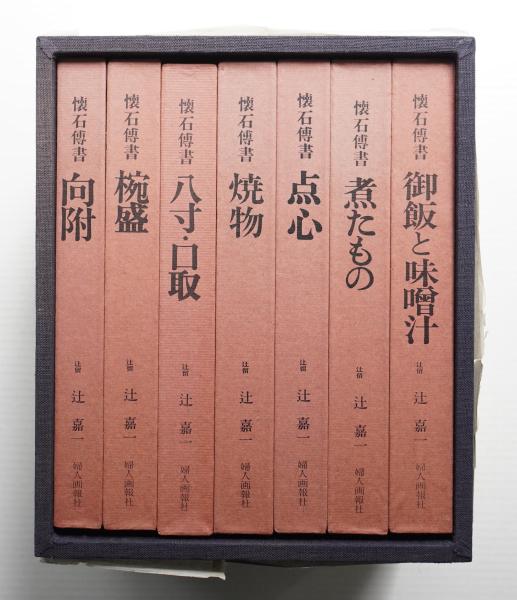 懐石傅書
御飯と味噌汁
辻留
辻 嘉一
婦人画報社
懐石傅書
煮たもの
辻留
辻 嘉一
婦人画報社
懐石傅書
点心
辻留
辻 嘉一
婦人画報社
懐石傅書
焼物
辻留
辻 嘉一
婦人画報社
懐石傅書
八寸・口取
辻留
辻 嘉一
婦人画報社
懐石傅書
椀盛
辻留
辻 嘉一
婦人画報社
懐石傅書
向附
辻留
辻 嘉一
婦人画報社